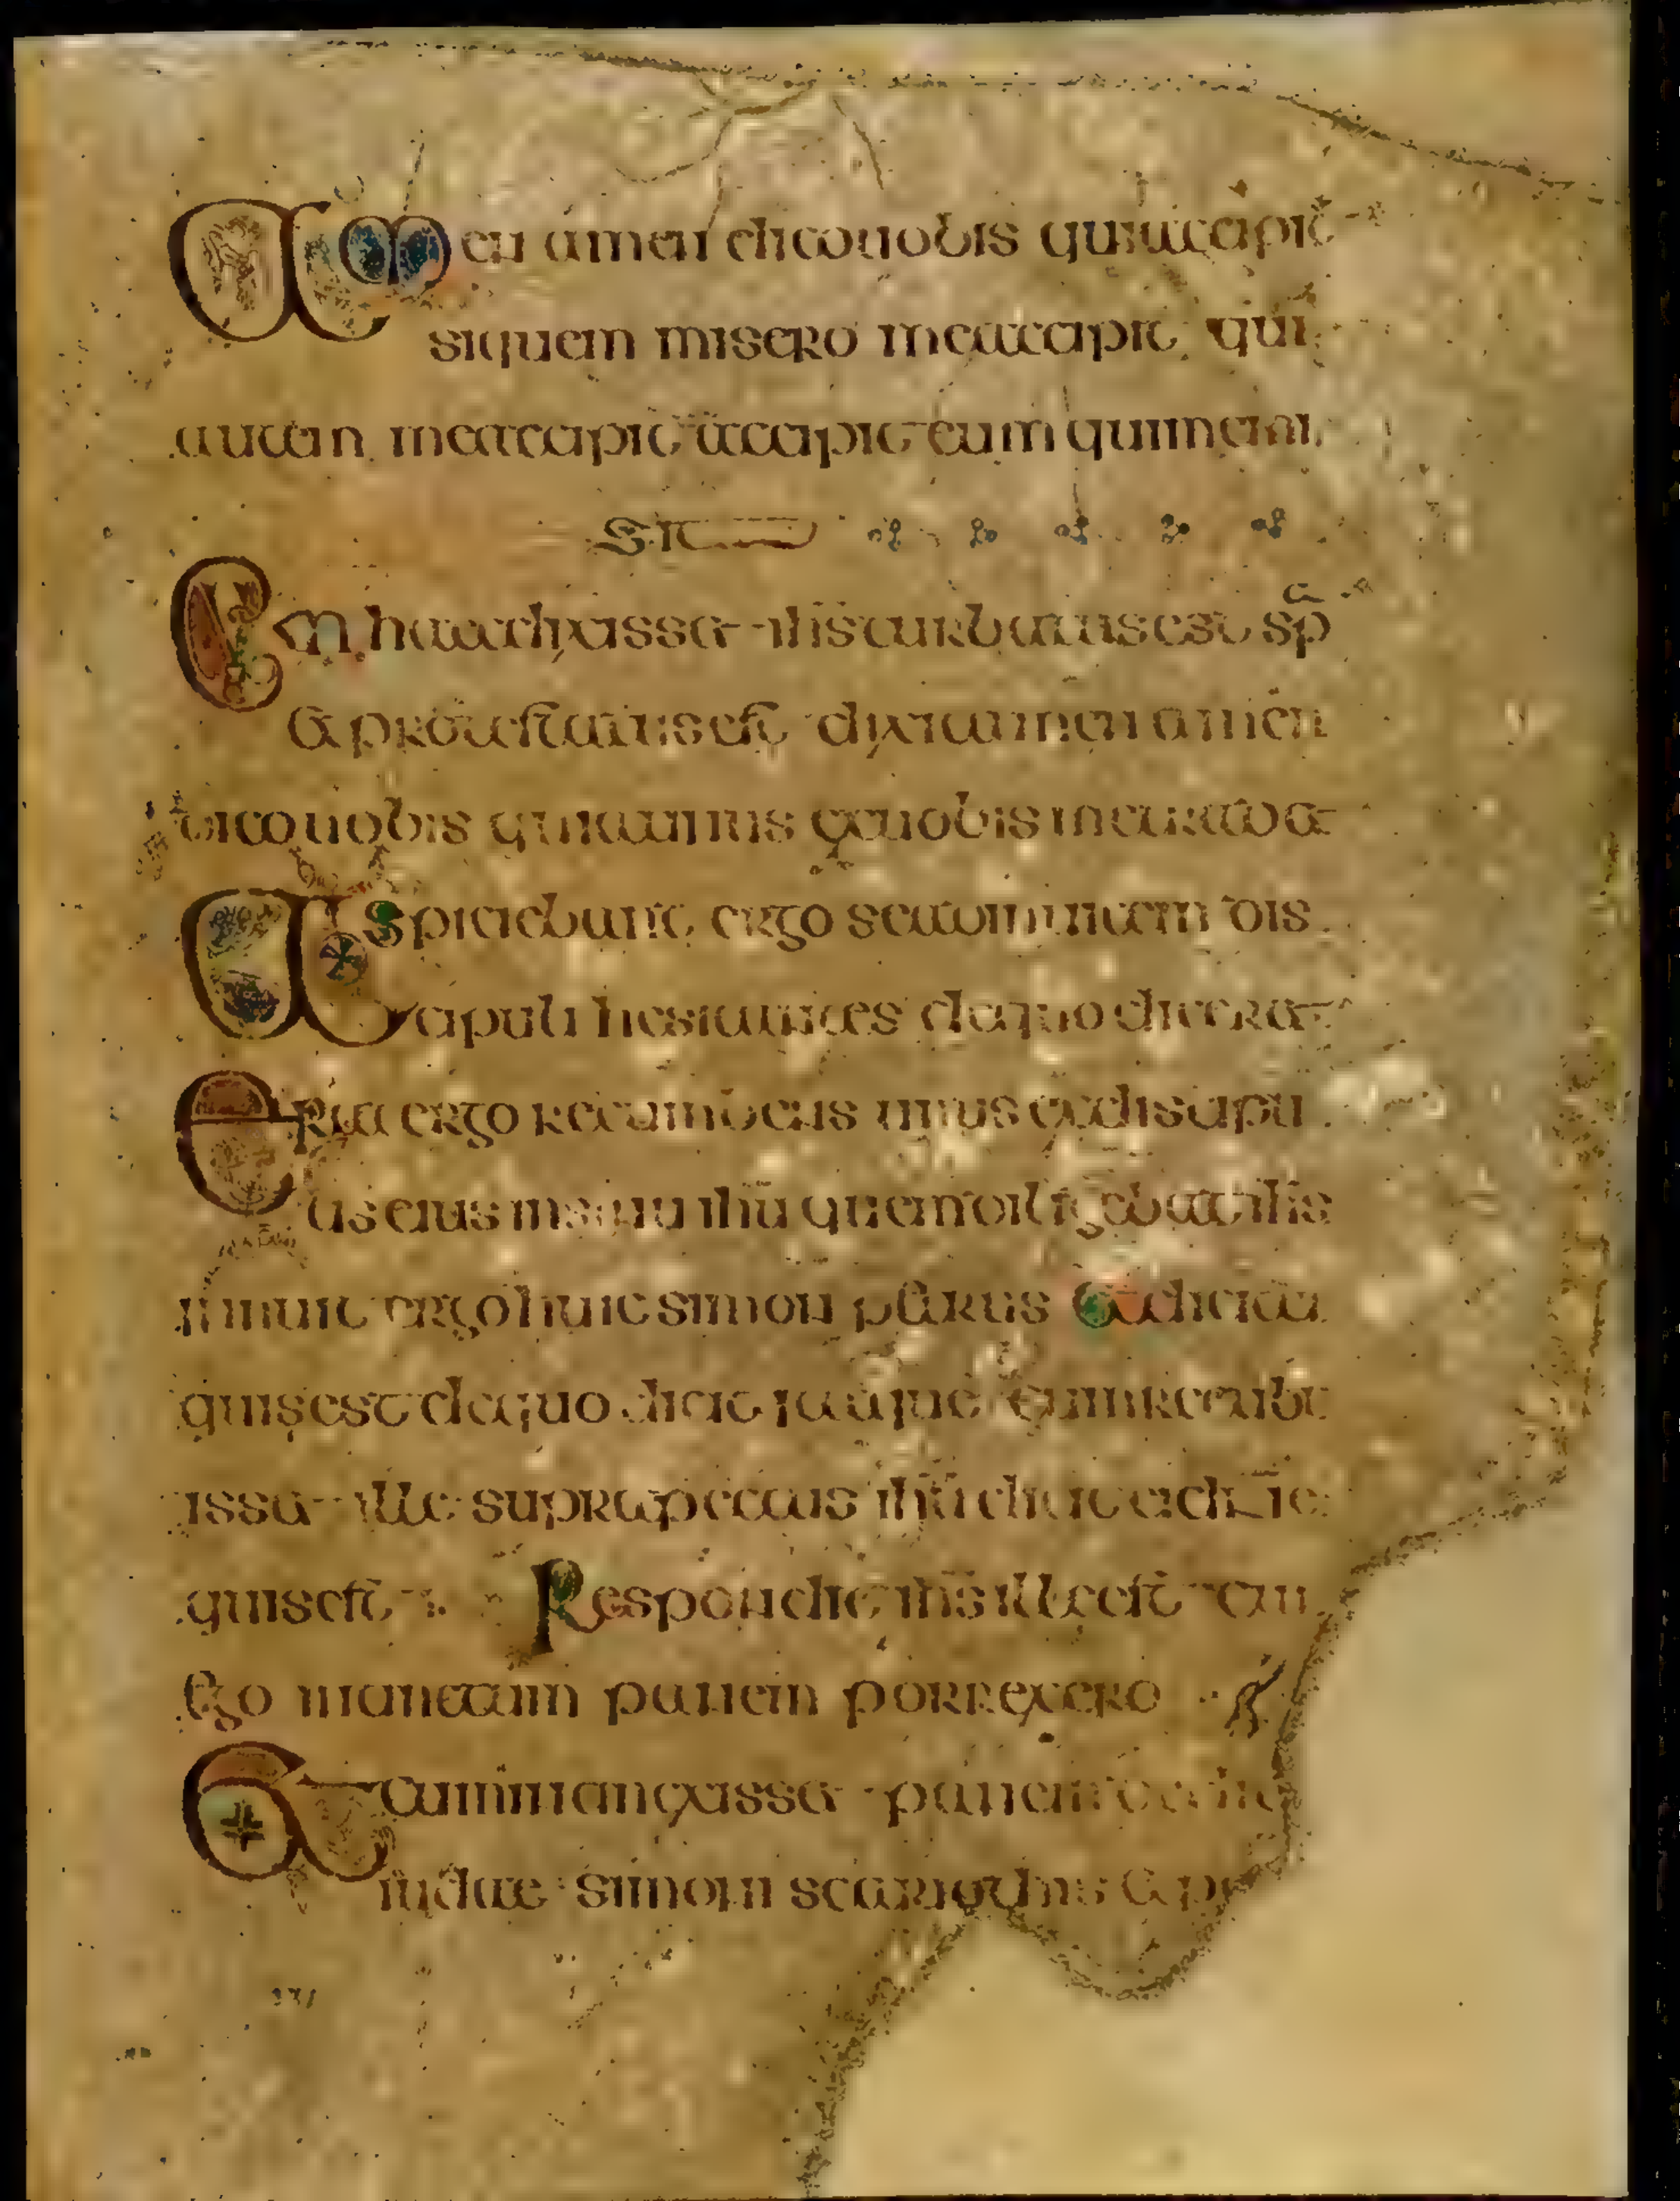 Amen amen dico uobis qui accipit
siquem misero me accipit qui
autem me accipit accipit eum qui me mi
sit
Cum haec dixisset ihs turbatus est spū
et protestatus est dixit amen amen
dico uobis quia unus ex uobis me tradet
Aspiciebant ergo se ad inuicem dis
cipuli hesitantes de quo diceret
Erat ergo recumbens unus ex discipu
lis eius in sinu ihū quem diligebat ihs
innuit ergo huic simon petrus et dicit ei
quis est de quo dicit itaque cum recubu
isset ille supra pectus ihū dicit ei dne
quis est Respondit ihs ille est cui
ego tinctum panem porrexero
Et cum tinxisset panem dedit
iudae simonis scariothis et p